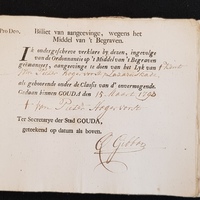 Pro Deo.
Billet van aangeevinge, wegens het
Middel van 't Begraven.
Ik ondergeschreve verklare by deezen, ingevolge
van de Ordonnantie op 't Middel van 't Begraven
geëmaneert, aangevinge te doen van het Lyk van
als gehoorende onder de Classis van d' onvermogende.
Gedaan binnen GOUDA den 15 Maart
Ter Secretarye der Stad GOUDA,
getoekend op datum als boven.